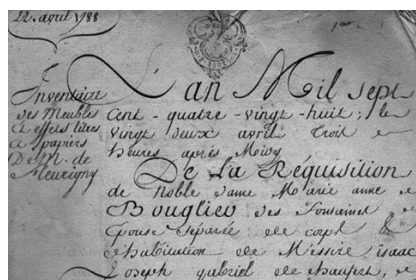 22. avril 1788
L'an Mil sept
Cent - quatre - vingt - huit ; le
vingt deux avril Troit
heures après Midy
Invention
des Meubles
& effets titres
& papiers
De M. de
fleurigny
De La Réquisition
de Noble Dame Marie anne
Bouglieu des
Epouse Separée de corps &
d'habitation de Messire isaac
Joseph gabriel de